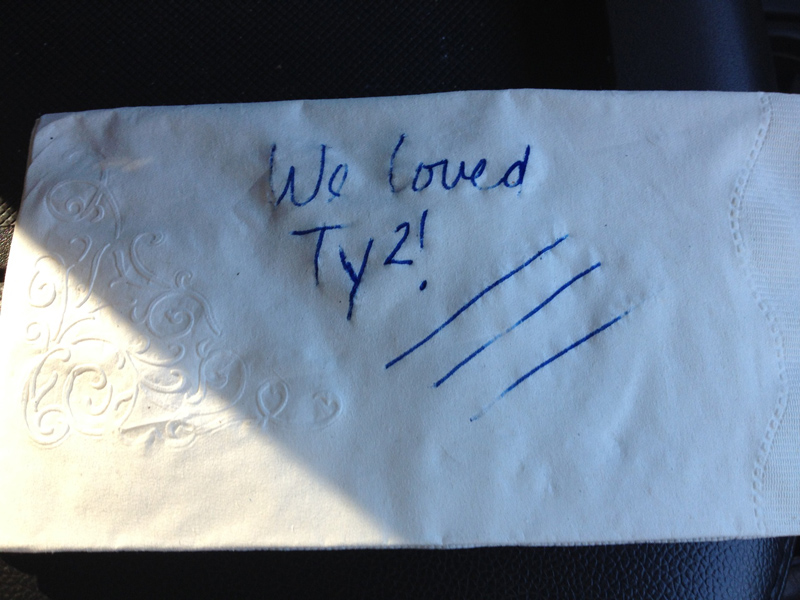 We loved
Ty2!